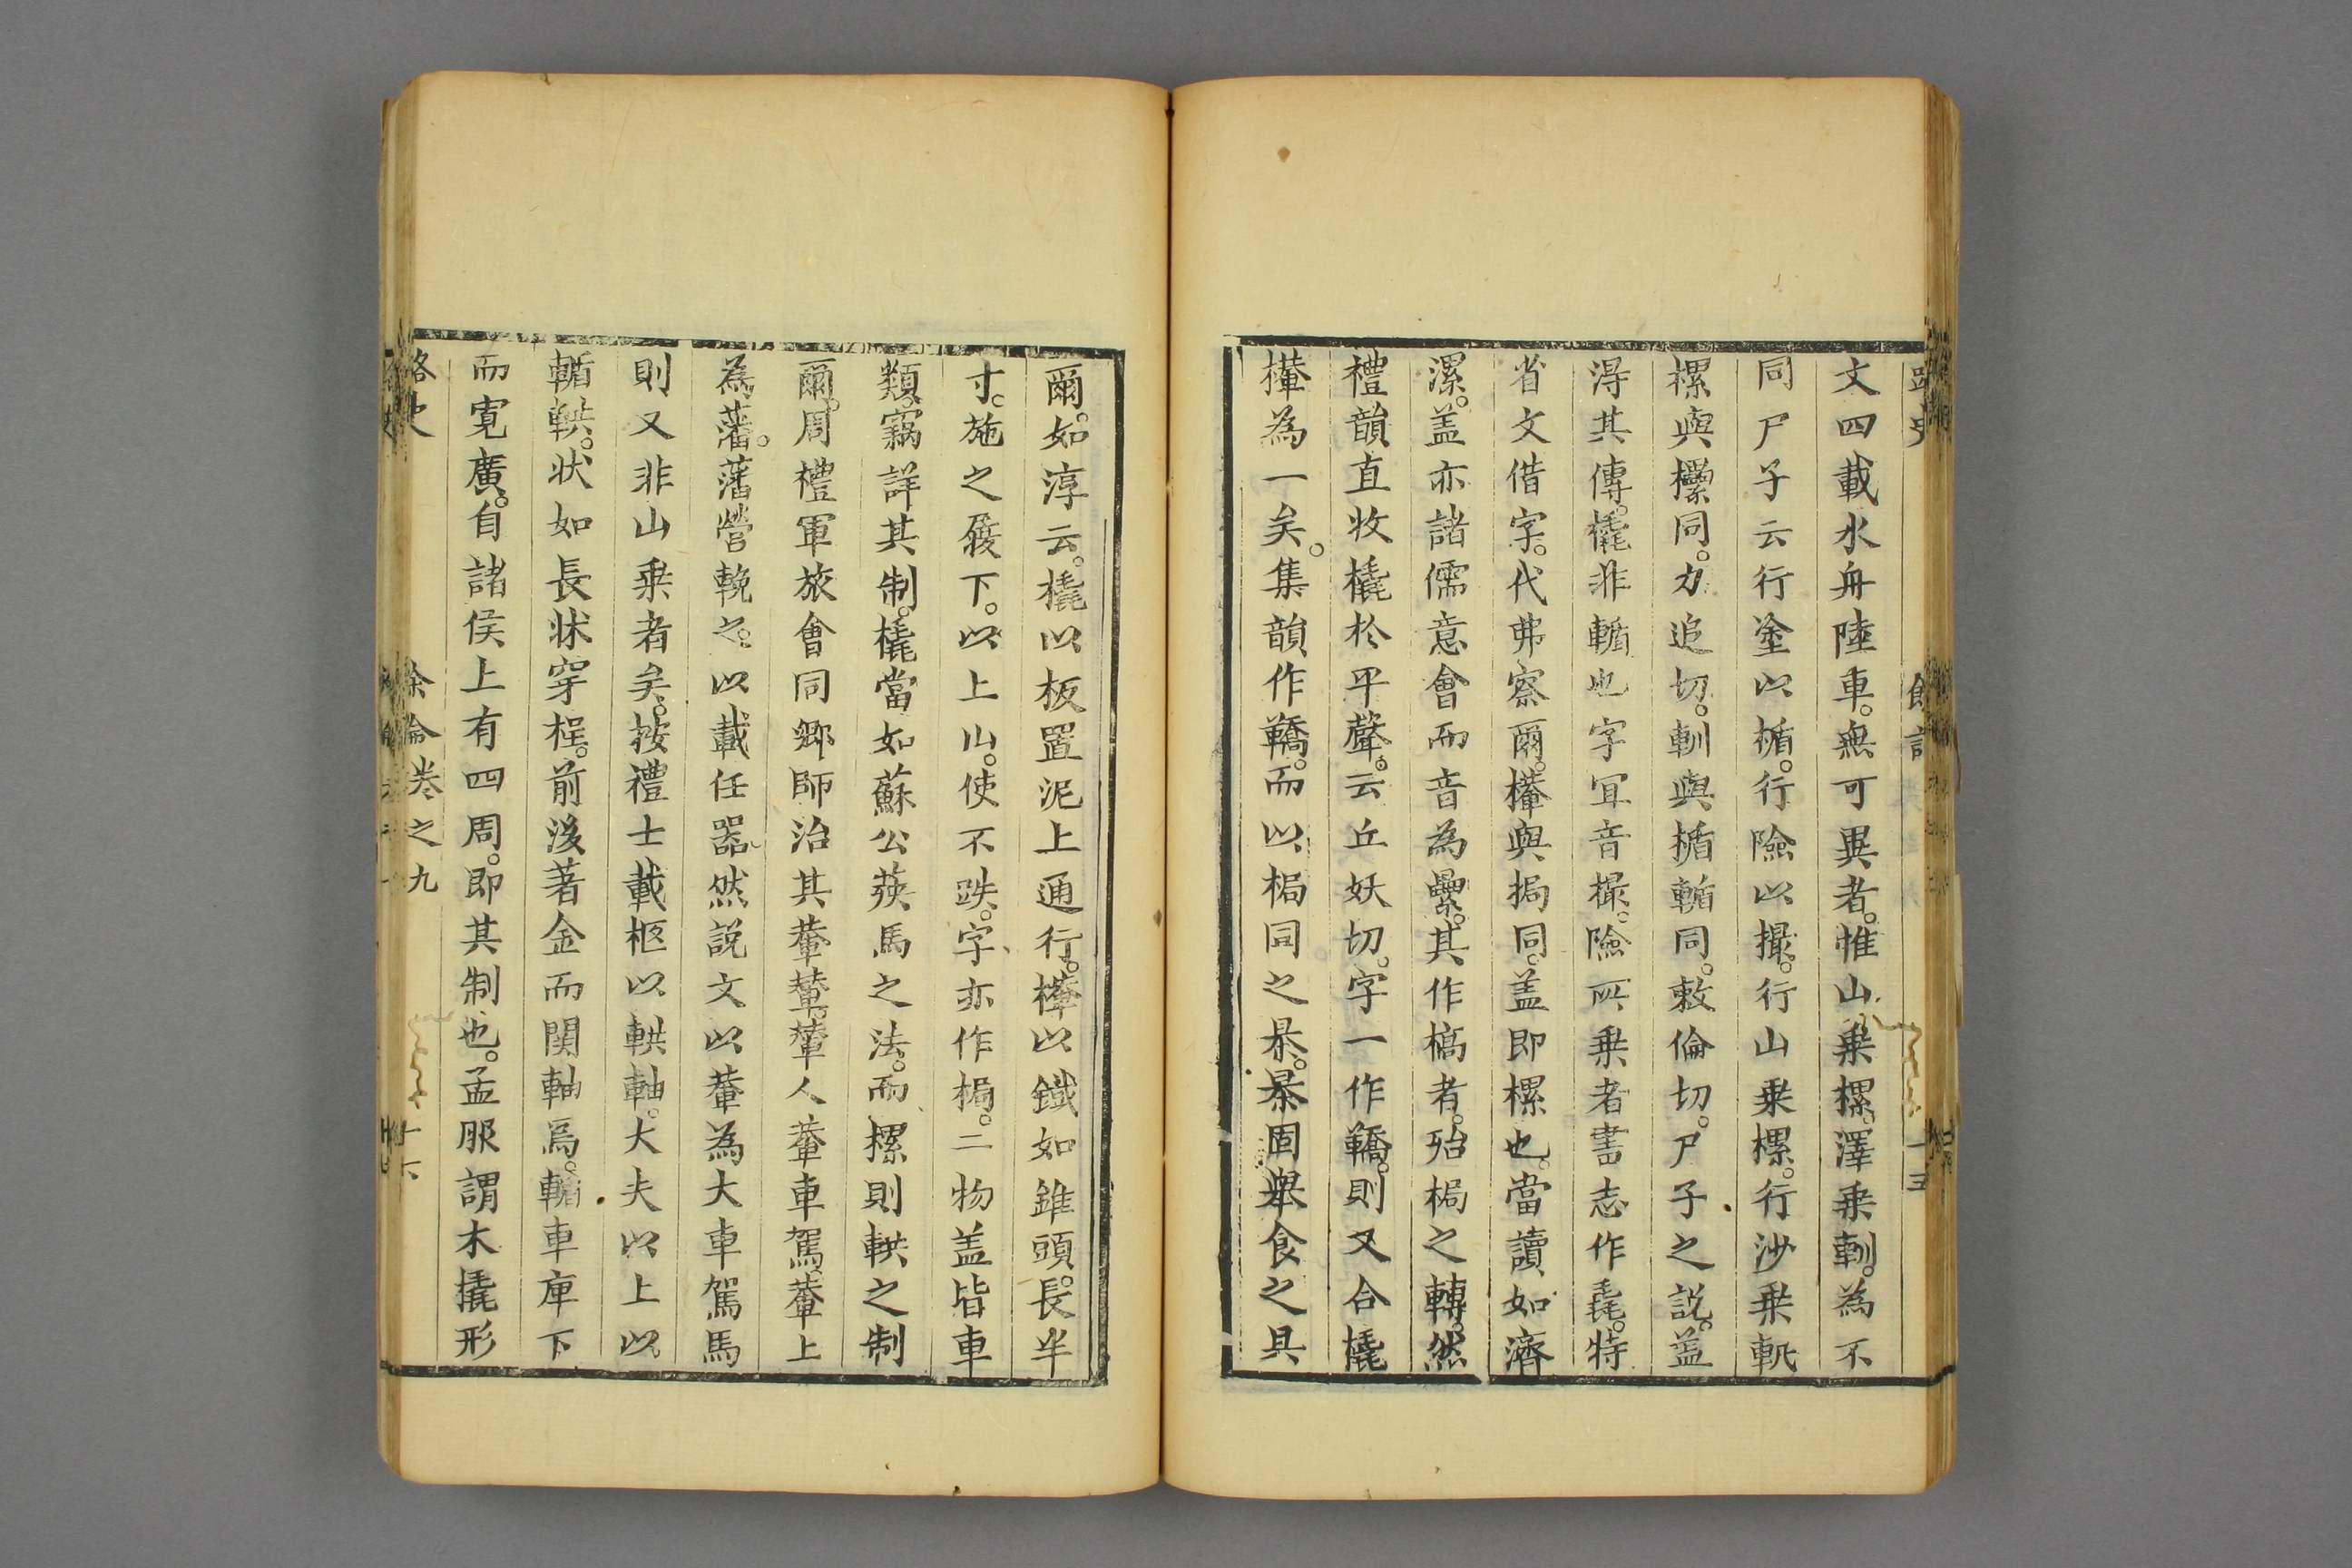 文四載水舟陸車。無可異者。惟山乗樏。澤乗輴。為不
同尸子云行塗以楯。行險以撮。行山乗樏。行沙乗軏
樏與欙同。力追切。輴與楯輴同。敕倫切。尸子之説。盖
淂其傳。橇非輴也字冝音撮。險所乗者書志作毳。特
省文借字。代弗察爾。樺與挶同。盖即樏也。當讀如濟
漯。盖亦諸儒意會而音為纍。其作檋者。殆梮之轉。然
禮韻直收橇於平聲。云丘妖切。字一作鞽。則又合橇
樺為一矣。集韻作鞽。而以梮同之暴。暴固轝食之具
爾。如淳云。橇以板置泥上通行。樺以鐵如錐頭。長半
寸。施之屐下。以上山。使不跌。字亦作梮。二物盖皆車
類。竊詳其制。橇當如蘇公葵馬之法。而樏則輁之制
爾。周禮軍旅會同鄉師治其輂輦。輦人輂車駕。輂上
為藩。藩營輓之。以載任器然説文以輂為大車駕馬
則又非山乗者矣。按禮士載柩以輁軸。大夫以上以
輴輁。状如長牀穿桯。前後著金而関軸焉。輴車庳下
而寛廣。自諸侯上有四周。即其制也。孟服謂木橇形
路史
餘論卷之九
十六
路史
餘論
十五